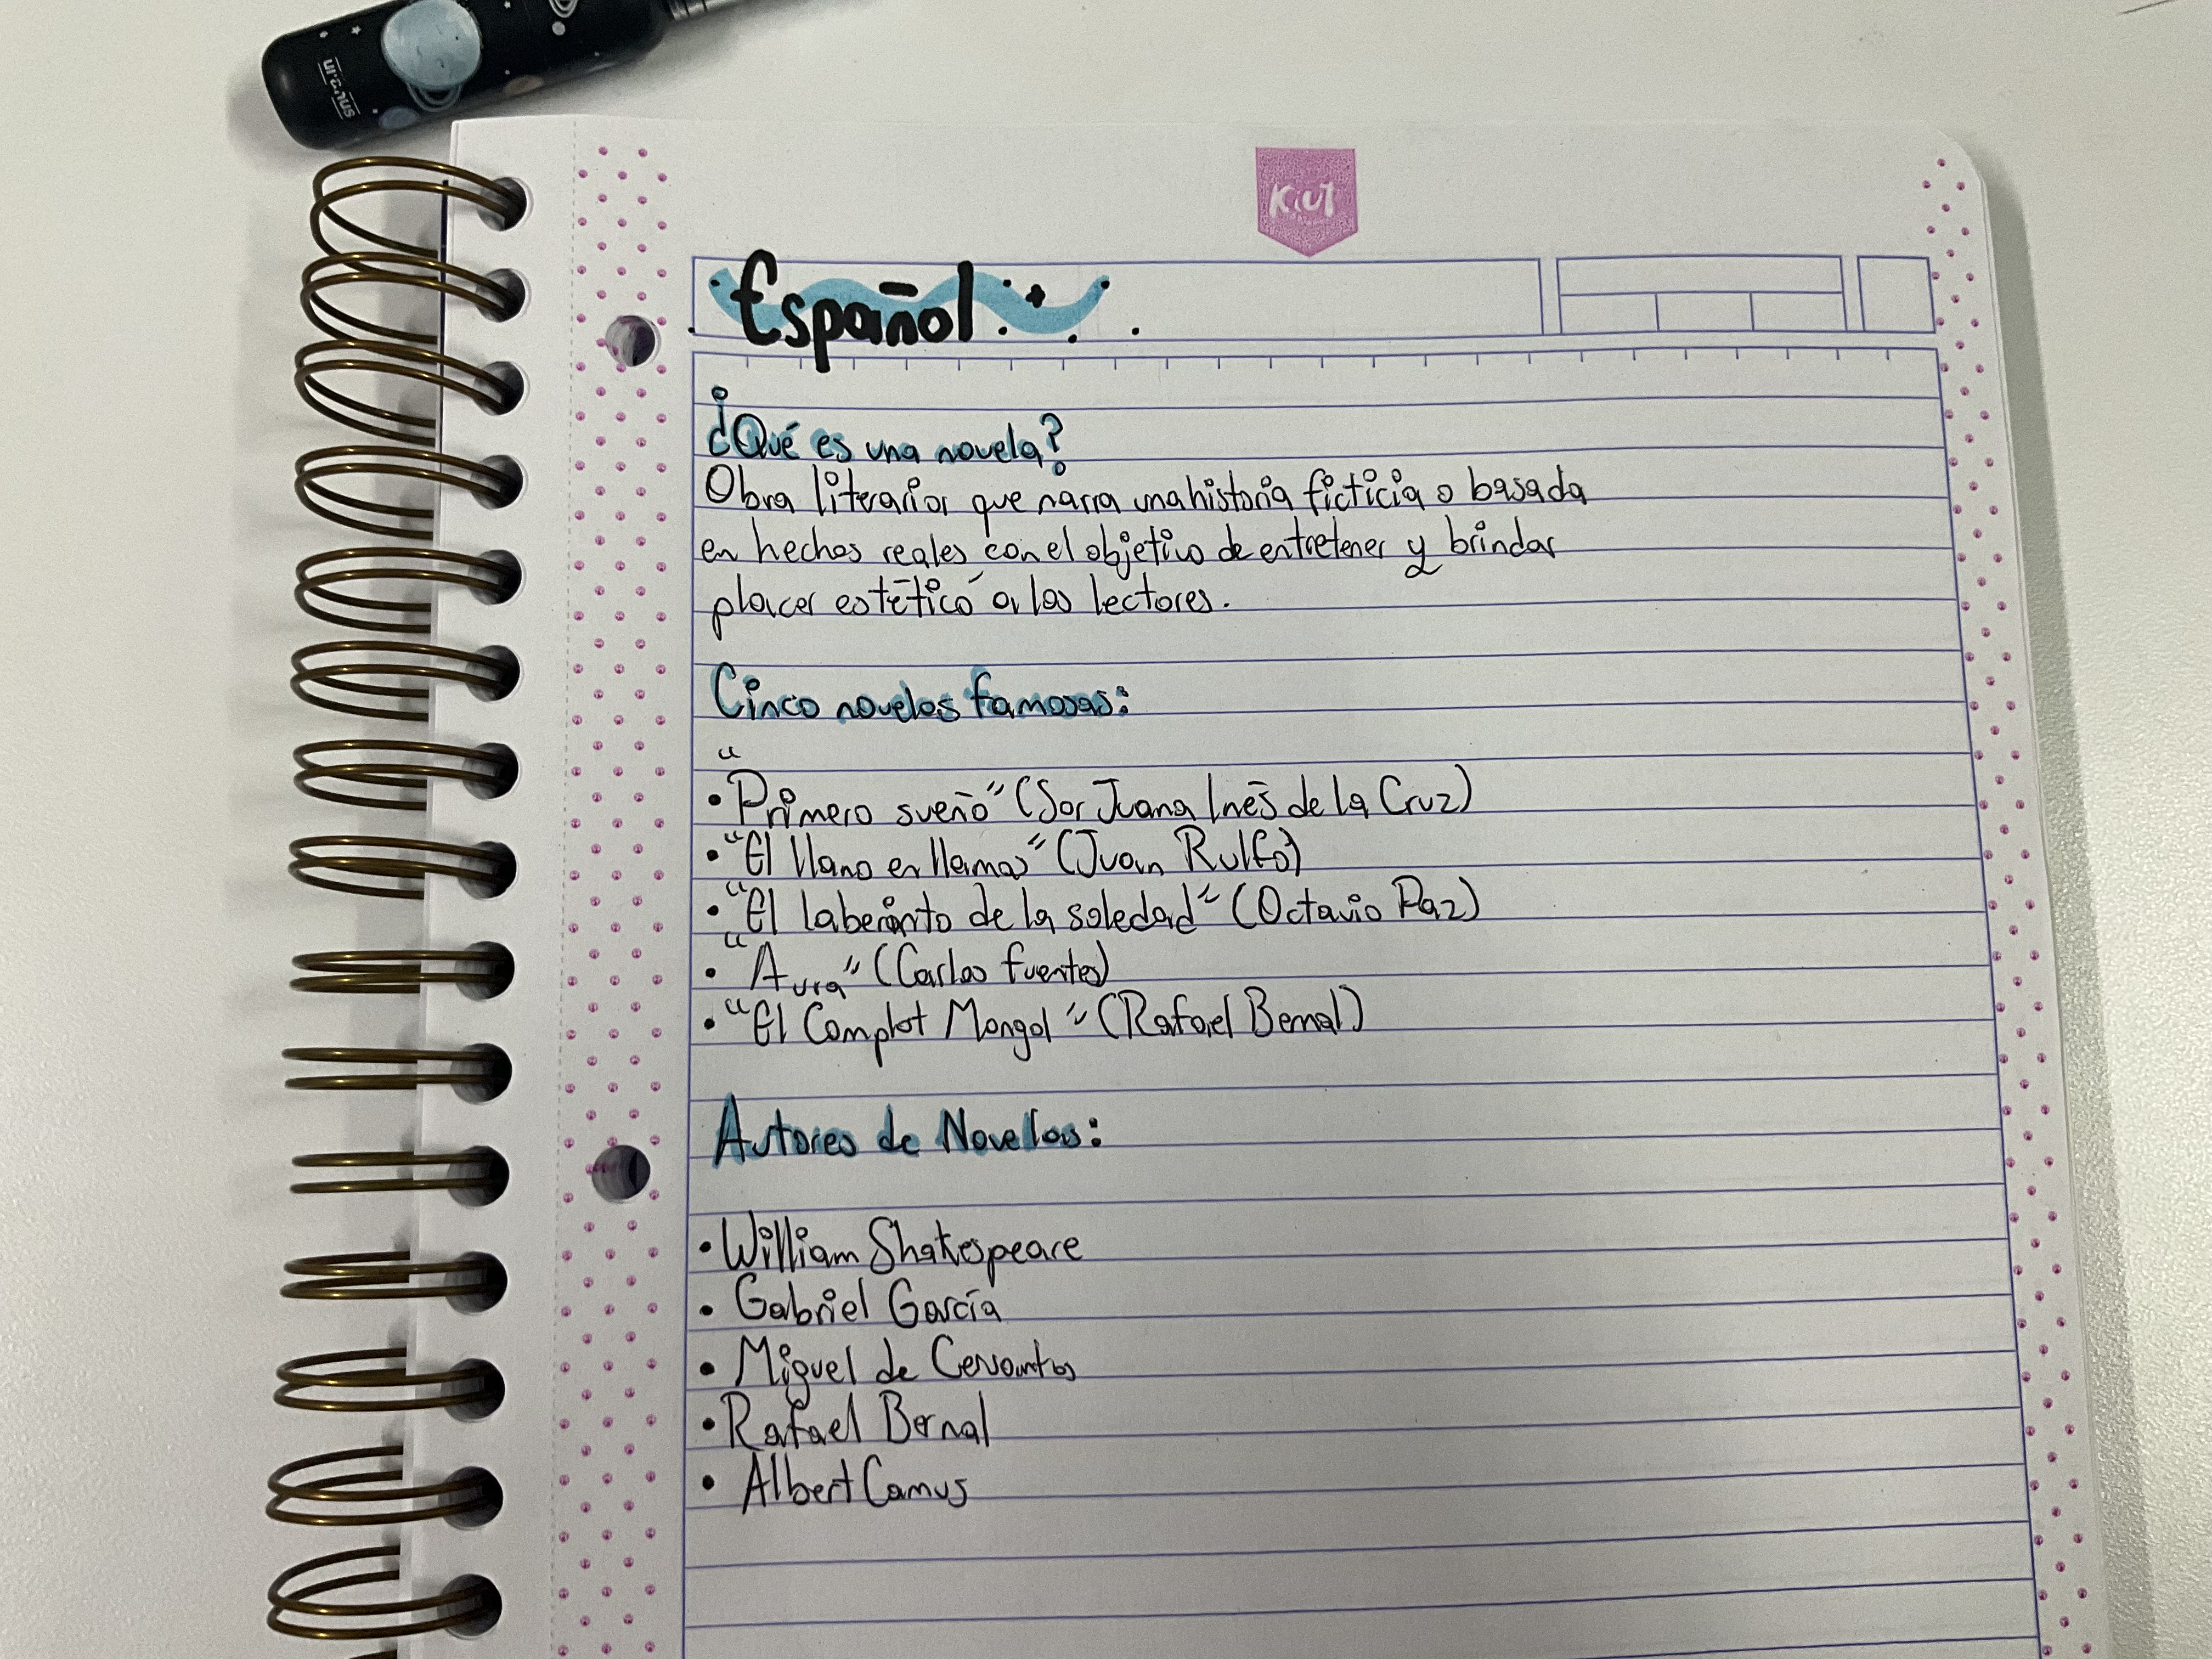 uranus
Kiut
Español
¿Qué es una novela?
Obra literaria que narra una historia ficticia o basada
en hechos reales con el objetivo de entretener y brindar
placer estético a los lectores.
Cinco novelas famosas:
• "Primero sueño" (Sor Juana Inés de la Cruz)
• "El llano en llamas" (Juan Rulfo)
• "El laberinto de la soledad" (Octavio Paz)
• "Aura" (Carlos Fuentes)
• "El Complot Mongol" (Rafael Bernal)
Autores de Novelas:
• William Shakespeare
• Gabriel García
• Miguel de Cervantes
• Rafael Bernal
• Albert Camus